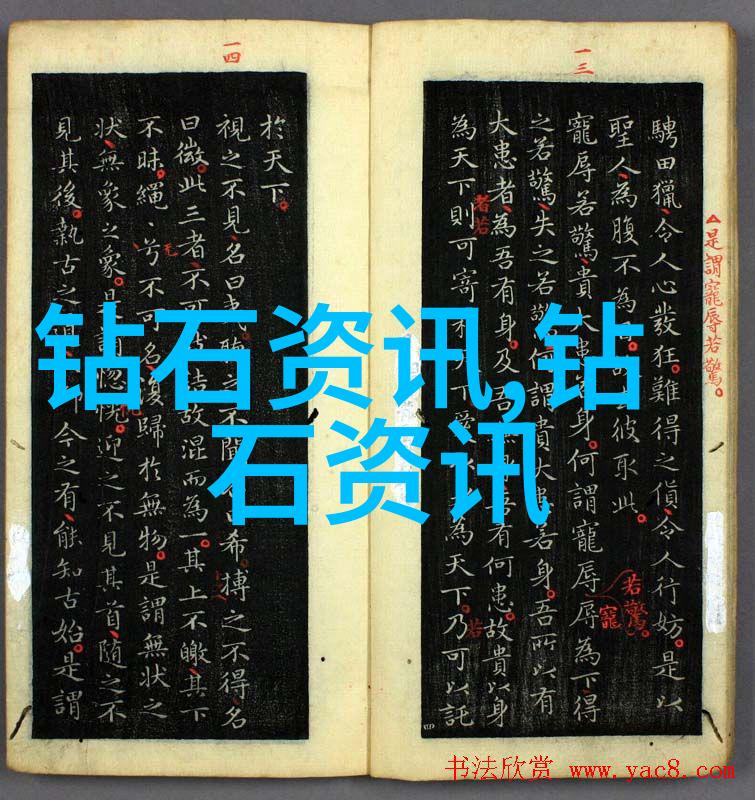 一三
△是謂寵辱若驚。
騁田獵令人心發狂。難得之貨令人行妨。是以
聖人為腹不為彼取此。
寵辱若驚貴大患身。何謂寵辱辱為下得
若驚。
寵
之若驚失之若驚何謂貴大患若身。吾所以有
大患者為吾有身。及吾有何患。故貴以身
者若
為天下則可寄於天下愛為天下。乃可以託
若
一四
於天下。
視之不見名曰夷聽之不聞希。搏之不得名
曰微此三者不可詰故混而為一。其上不皦其下
不昧。繩〻兮不可名復歸於無物。是謂無狀之
狀無象之象。是謂惚恍。迎之不見其首隨之不
見其後。執古之今之有能知古始。是謂
钻石资讯,钻
石资讯
书法欣赏 www.yac8.com